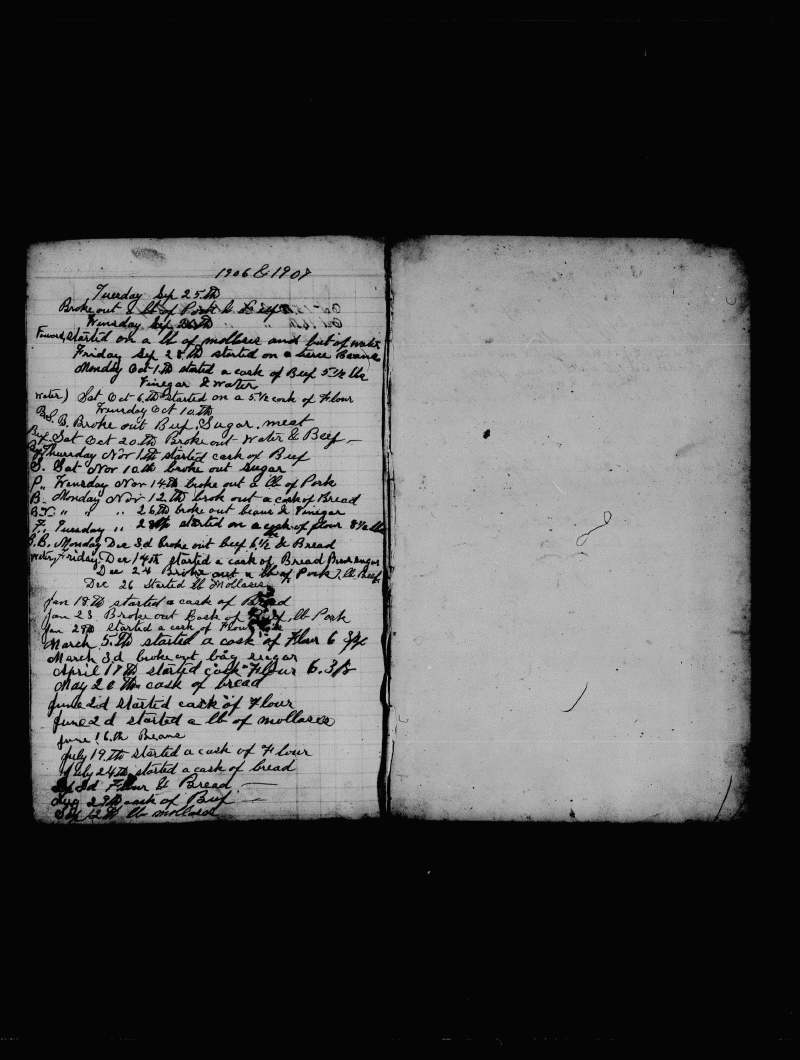 1906 & 1907
Tuesday Sep 25.th
Broke out a lb of Pork & Beef
Wensday Sep 26th
Foward, started on a lb of mollases and but of water
Friday Sep 28.th started on a terce Beans
Monday Oct 1.th started a cask of Beef 5 1/2 lbs
Vinegar & Water
Water) Sat Oct 6.th started on a 5 1/2 cask of Flour
Wensday Oct 10.th
B.S.B. Broke out Buf, Sugar. meat
Buf Sat Oct 20.th Broke out Water & Beef —
Thursday Nov 1.th started cask of Buf
S. Sat Nov 10.th broke out sugar
P,, Wensday Nov 14.th broke out a lb of Pork
B- Monday Nov 12.th brok out a cask of Bread
B.V. ,, ,, ,, 26.th broke out beans & Vinegar
F,, Tuesday ,, started on a cask of flour 8 1/2 lbs
B.B. Monday Dec 3d broke out beef 6 1/2 & Bread
Water, Friday Dec 14th started a cask of Bread sugar
Dec 24 Broke out a lb of Pork, lb Beef
Dec 26 Started lb Mollases
Jan 18.th started a cask of Bread
Jan 23 Broke out Cask of Buf, lb Pork
Jan 29th Started a cask of Flour
March 5.th started a cask of Flour 6
March 3d broke out bag sugar
April 18th started cask Flour 6.
May 20.th cask of bread
June 2d started cask of Flour
June 2d started a lb of mollases
June 16.th Beans
July 19.th started a cask of Flour
July 24.th started a cask of bread
3d Flour & Bread —
Aug 29th cask of Buf —
Sep 12th lb mollases